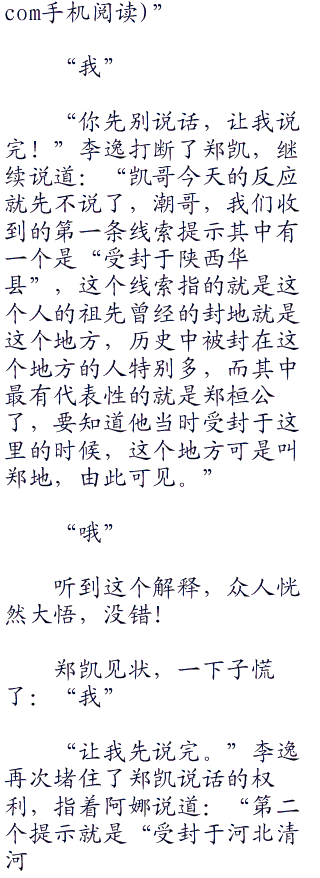 com手机阅读)”
“我”
“你先别说话，让我说
完！”李逸打断了郑凯，继
续说道：“凯哥今天的反应
就先不说了，潮哥，我们收
到的第一条线索提示其中有
一个是“受封于陕西华
县”，这个线索指的就是这
个人的祖先曾经的封地就是
这个地方，历史中被封在这
个地方的人特别多，而其中
最有代表性的就是郑桓公
了，要知道他当时受封于这
里的时候，这个地方可是叫
郑地，由此可见。”
“哦”
听到这个解释，众人恍
然大悟，没错！
郑凯见状，一下子慌
了：“我”
“让我先说完。”李逸
再次堵住了郑凯说话的权
利，指着阿娜说道：“第二
个提示就是“受封于河北清
河